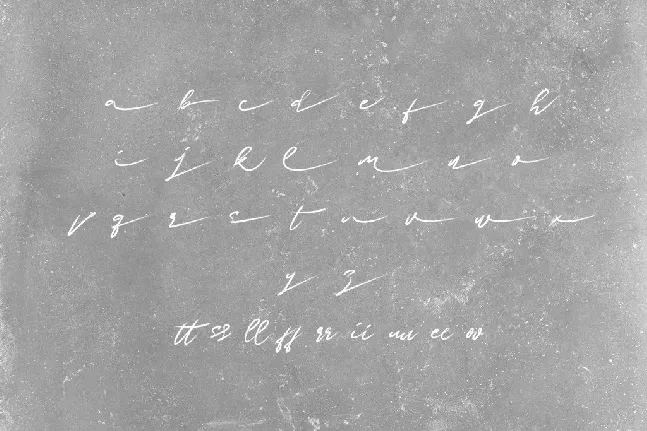 a b c d e f g h
i j k l m n o
p q r s t u v w x
y z
tt ss ll ff rr ii uu ee oo